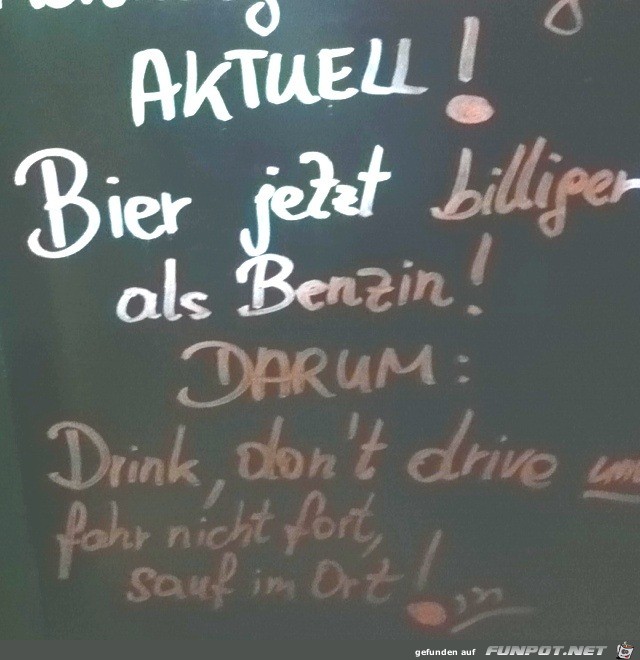 AKTUELL!
Bier jetzt billiger
als Benzin!
DARUM:
Drink, don't drive
fahr nicht fort,
sauf im Ort!
gefunden auf FUNPOT.NET